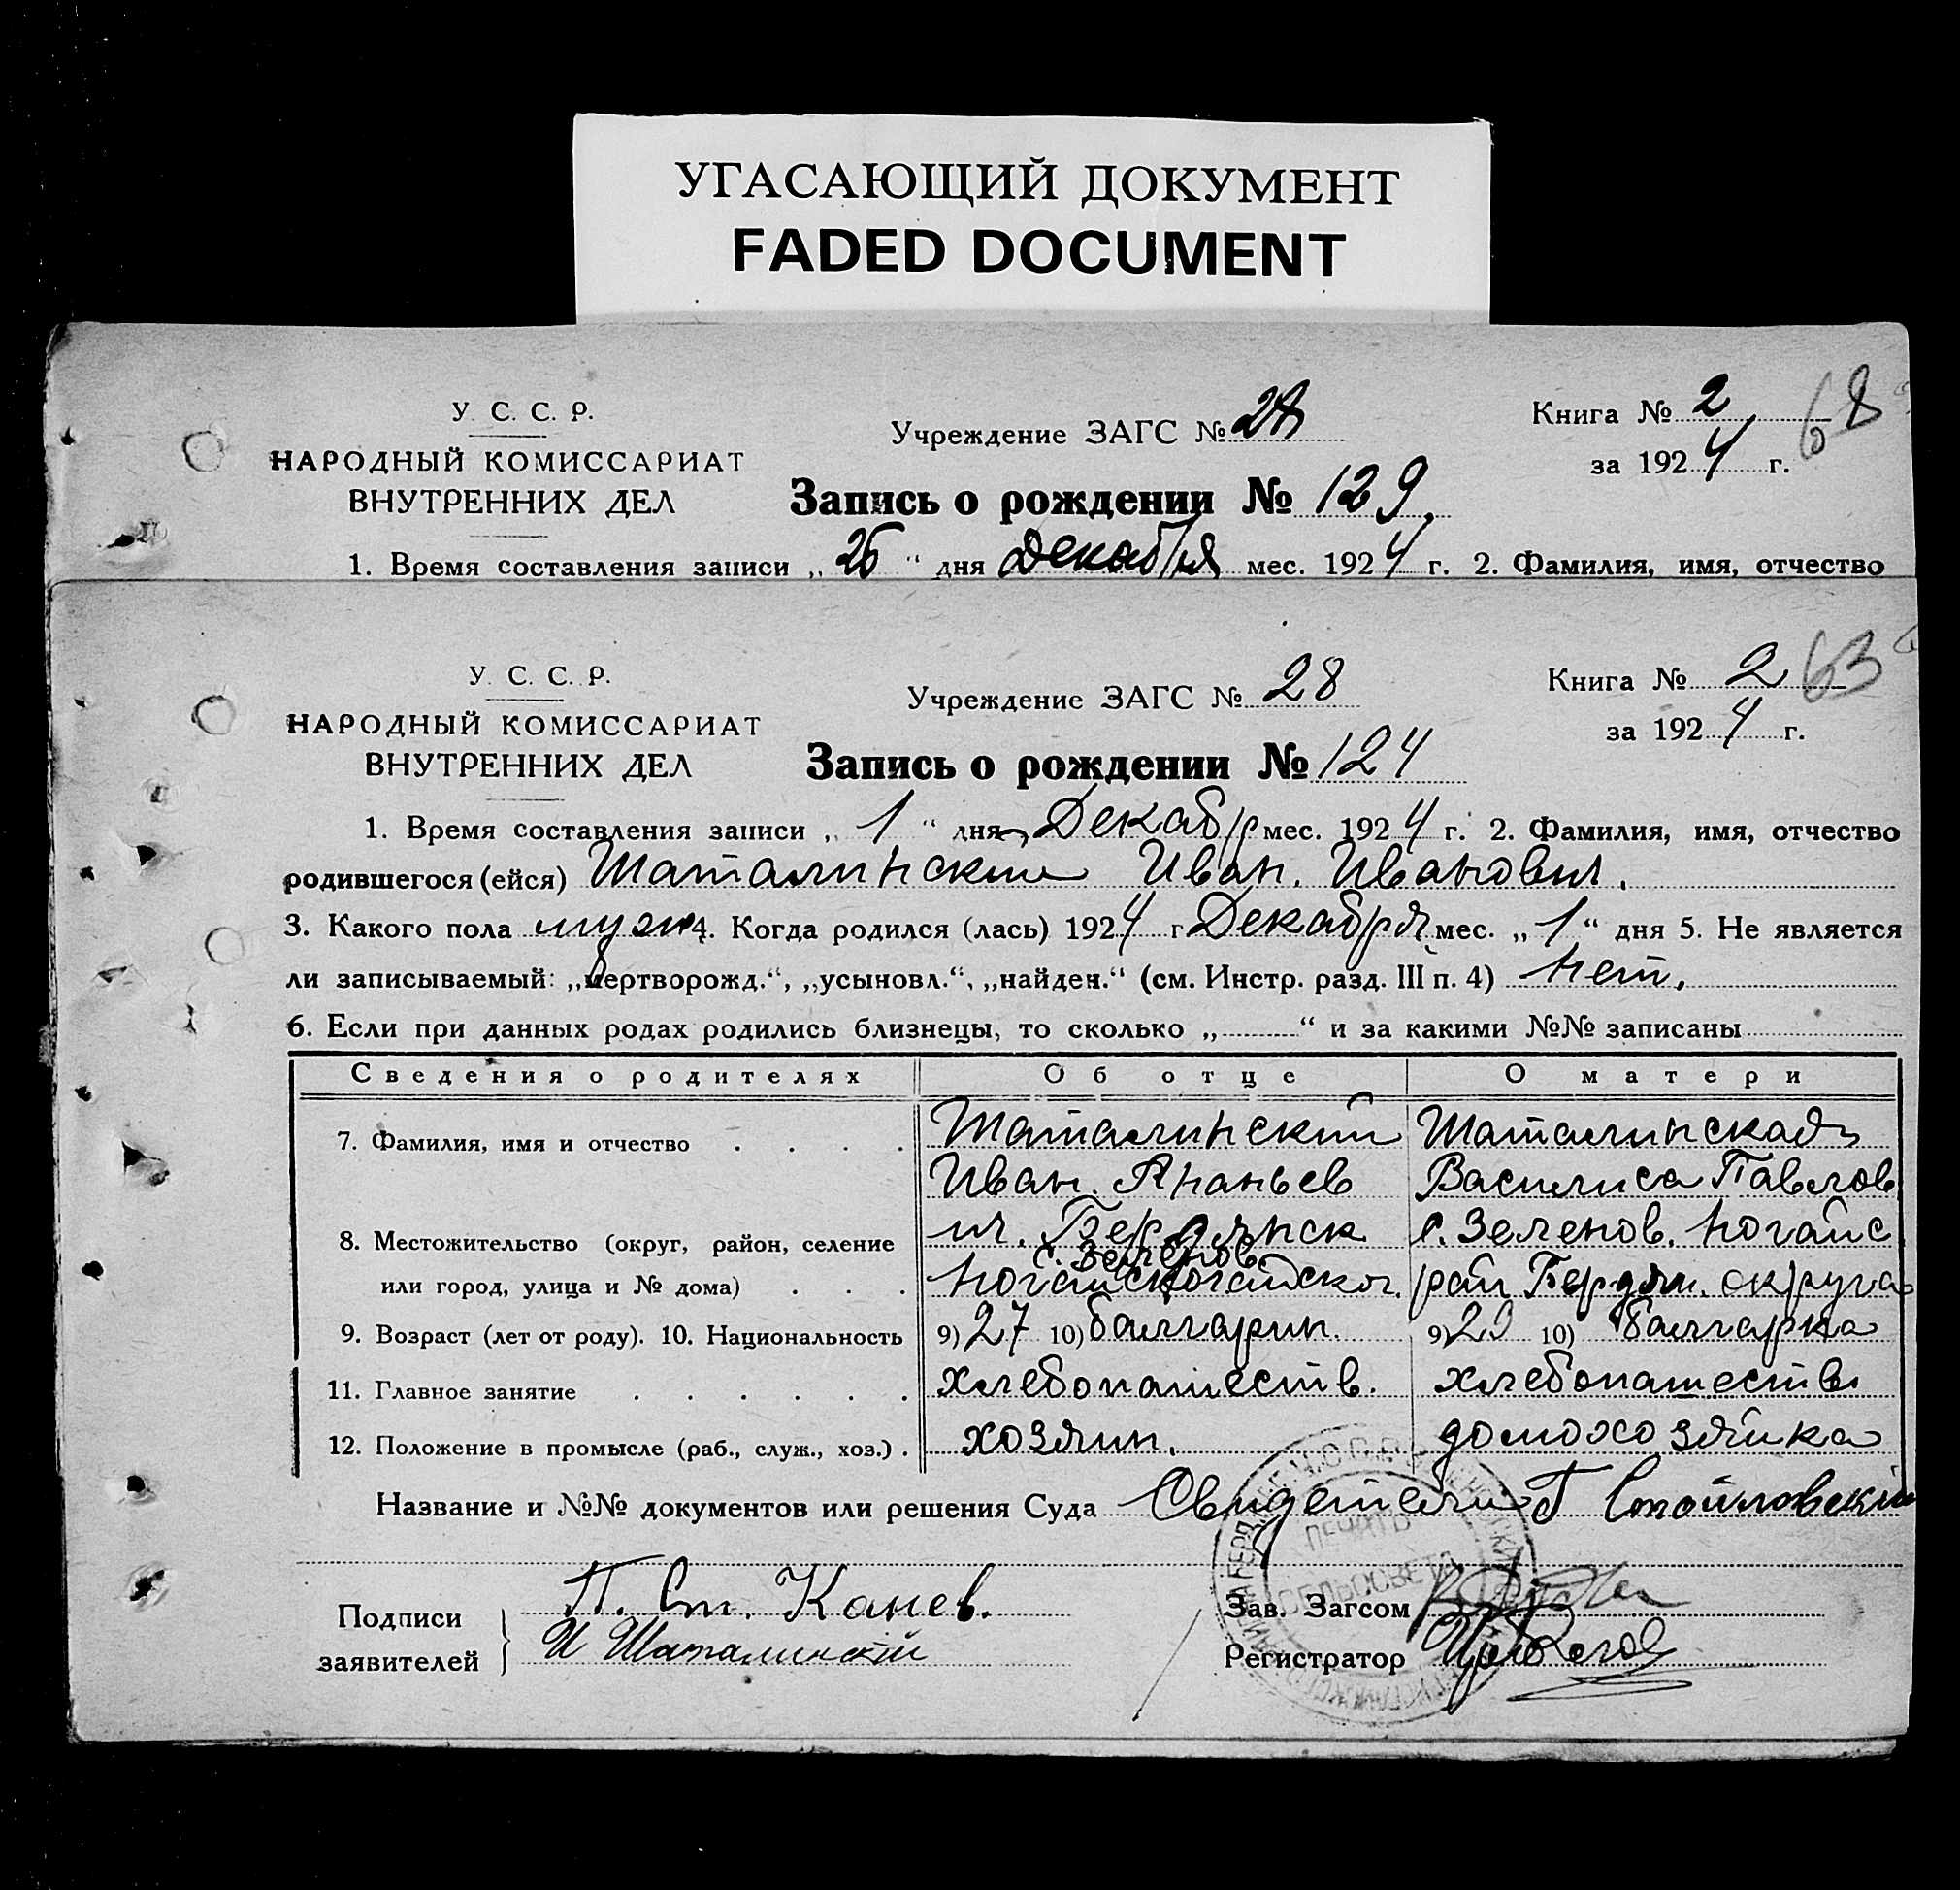 УГАСАЮЩИЙ ДОКУМЕНТ
FADED DOCUMENT
У. С. С. Р.
НАРОДНЫЙ КОМИССАРИАТ
ВНУТРЕННИХ ДЕЛ
Учреждение ЗАГС № 28
Книга № 2
68
за 1924 г.
Запись о рождении № 129.
1. Время составления записи „ 26 “ дня Декабря мес. 1924 г. 2. Фамилия, имя, отчество
У. С. С. Р.
НАРОДНЫЙ КОМИССАРИАТ
ВНУТРЕННИХ ДЕЛ
Учреждение ЗАГС № 28
Книга № 2
63
за 1924 г.
Запись о рождении № 124
1. Время составления записи „ 1 “ дня Декабр мес. 1924 г. 2. Фамилия, имя, отчество
родившегося (ейся) Шаталинский Иван. Иванович.
3. Какого пола муж 4. Когда родился (лась) 1924 г Декабря мес. „ 1 “ дня 5. Не является
ли записываемый: „мертворожд.“, „усыновл.“, „найден.“ (см. Инстр. разд. III п. 4) нет.
6. Если при данных родах родились близнецы, то сколько „ “ и за какими №№ записаны
Сведения о родителях Об отце О матери
7. Фамилия, имя и отчество Шаталинский Шаталинская
Иван. Ананьев Василиса Павлов
8. Местожительство (округ, район, селение Бердянск с. Зеленов. Ногайс
с. Зеленов
или город, улица и № дома) рай Бердян. округа
9. Возраст (лет от роду). 10. Национальность 9) 27 10) балгарин. 9) 29 10) балгарка
11. Главное занятие хлебопашеств. хлебопашеств.
12. Положение в промысле (раб., служ., хоз.) хозяин. домохозяйка
Название и №№ документов или решения Суда Свидетели П Стойловский
ПЕЧАТЬ
СЕЛЬСОВЕТА
Подписи заявителей
П. Ст. Канев.
И Шаталинский
Зав. Загсом
Регистратор